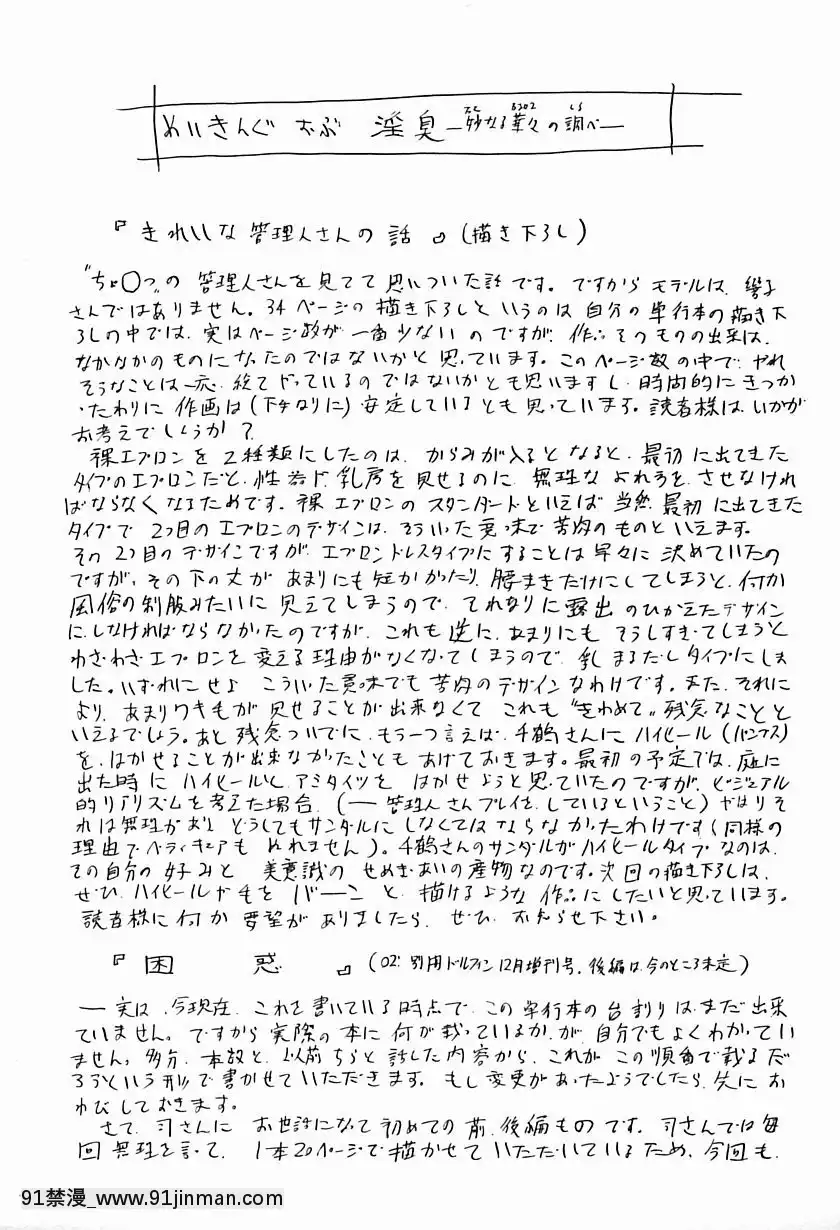 めいきんぐ おぶ 淫臭 ―妙なる華々の調べ―
『きれいな管理人さんの話』(描き下ろし)
"ちょ○っ"の管理人さんを見てて思いついた話です。ですからモデルは、響子
さんではありません。34ページの描き下ろしというのは自分の単行本の描き下
ろしの中では、実はページ数が一番少ないのですが、作品そのものの出来は、
なかなかのものになったのではないかと思っています。このページ数の中で、やれ
そうなことは一応、総てやっているのではないかとも思いますし、時間的にきつか
ったわりに作画は(下手なりに)安定しているとも思っています。読者様は、いかが
お考えでしょうか?
裸エプロンを2種類にしたのは、からみが入るとなると、最初に出てきた
タイプのエプロンだと、性器や、乳房を見せるのに、無理なよれ方を、させなけれ
ばならなくなるためです。裸エプロンのスタンダードといえば当然、最初に出てきた
タイプで2つ目のエプロンのデザインは、そういった意味で苦肉のものといえます。
その2つ目のデザインですが、エプロンドレスタイプにすることは早々に決めていたの
ですが、その下の丈があまりにも短かかったり、腰まきだけにしてしまうと、何か
風俗の制服みたいに見えてしまうので、それなりに露出のひかえたデザイン
に、しなければならなかったのですが、これも逆に、あまりにもそうしすぎてしまうと
わざわざエプロンを変える理由がなくなってしまうので、乳まるだしタイプにしま
した。いずれにせよ こういった意味でも苦肉のデザインなわけです。また、それに
より、あまりワキ毛が見せることが出来なくてこれも"きわめて"残念なことと
いえるでしょう。あと残念ついでに、もう一つ言えば、千鶴さんにハイヒール(パンプス)
を、はかせることが出来なかったこともあげておきます。最初の予定では、庭に
出た時にハイヒールと、アミタイツをはかせようと思っていたのですが、ビジュアル
的リアリズムを考えた場合、(―管理人さんプレイを、しているということ)やはりそ
れは無理があり、どうしてもサンダルにしなくてはならなかったわけです(同様の
理由でペディキュアもぬれません)。千鶴さんのサンダルがハイヒールタイプなのは、
その自分の好みと 美意識のせめぎあいの産物なのです。次回の描き下ろしは、
ぜひ、ハイヒールや毛をバーンと、描けるような作品にしたいと思っています。
読者様に何か要望がありましたら、ぜひ、お知らせ下さい。
『困惑』(02:別冊ドルフィン12月増刊号、後編は今のところ未定)
―実は、今現在、これを書いている時点で、この単行本の台割りは、まだ出来
ていません。ですから実際の本に何が載っているか、が、自分でもよくわかってい
ません。多分、本敬と、以前ちらと話した内容から、これがこの順番で載るだ
ろうという形で書かせていただきます。もし変更があったようでしたら、先にお
わびしておきます。
さて、司さんに お世話になって初めての前、後編ものです。司さんでは毎
回無理を言って、1本20ページで描かせていただいているため、今回も、
91禁漫_www.91jinman.com